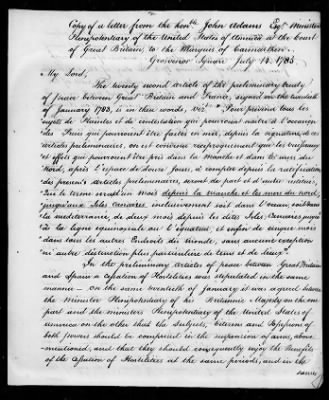 Copy of a letter from the honble John Adams Esqr Minister
Plenipotentiary of the United States of America at the Court
of Great Britain, to the Marquis of Carmarthen.
Grosvenor Square July 14. 1785
My Lord,
The twenty second article of the preliminary treaty
of peace between Great Britain and France, signed on the twentieth
of January 1783, is in these words, vizt "Pour prévenir tous les
sujets de Plaintes et de contestation qui pourroient naitre à l'occasion
des Prises qui pourroient être faites en mer, depuis la signature de ces
articles preliminaires, on est convenu réciproquement que les vaisseaux
et effets qui pourroient être pris dans la Manche et dans les mers du
Nord, après l'espace de douze jours, à compter depuis la ratification
des presents articles préliminaires, seront de part et d'autre restitués;
que le terme sera d'un mois depuis la manche et les mers du nord,
jusqu'aux Isles Canaries inclusivement soit dans l'Ocean, soit dans
la mediterranée, de deux mois depuis les dites Isles Canaries jusqu'
à la ligne équinoxiale ou l'équateur, et enfin de cinq mois
dans tous les autres Endroits du monde, sans aucune exception
ni autre distinction plus particuliere de tems et de lieux"
In the preliminary articles of peace between Great Britain
and Spain a Cessation of Hostilities was stipulated in the same
manner — On the same twentieth of January it was agreed between
the Minister Plenipotentiary of his Britannic Majesty on the one
part and the ministers Plenipotentiary of the United States of
America on the other that the Subjects, Citizens and Possessions of
both Powers should be comprised in the suspension of arms, above
mentioned, and that they should consequently enjoy the Benefits
of the Cessation of Hostilities at the same periods, and in the
same